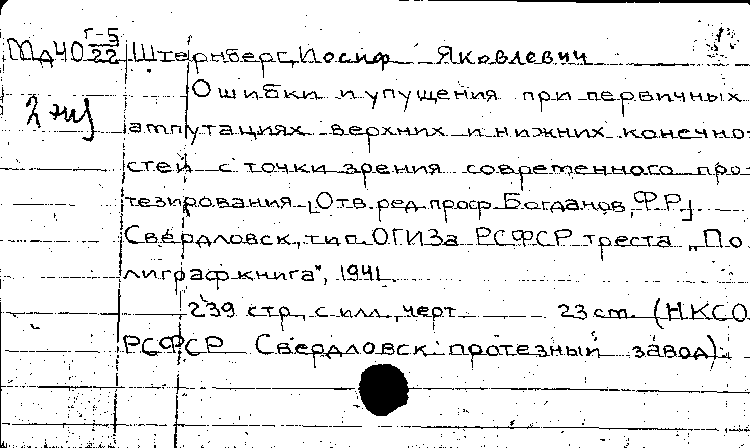 Мд40 Г-5/22 Штернберг, Иосиф Яковлевич
Ошибки и упущения при первичных
2 экз
ампутациях верхних и нижних конечно-
стей с точки зрения современного про-
тезирования [Отв. ред. проф. Богданов, Ф.Р.].
Свердловск, тип. ОГИЗа РСФСР треста „По-
лиграфкнига", 1941.
239 стр., с илл., черт. 23 cm. (НКСО
РСФСР Свердловск. протезный завод).